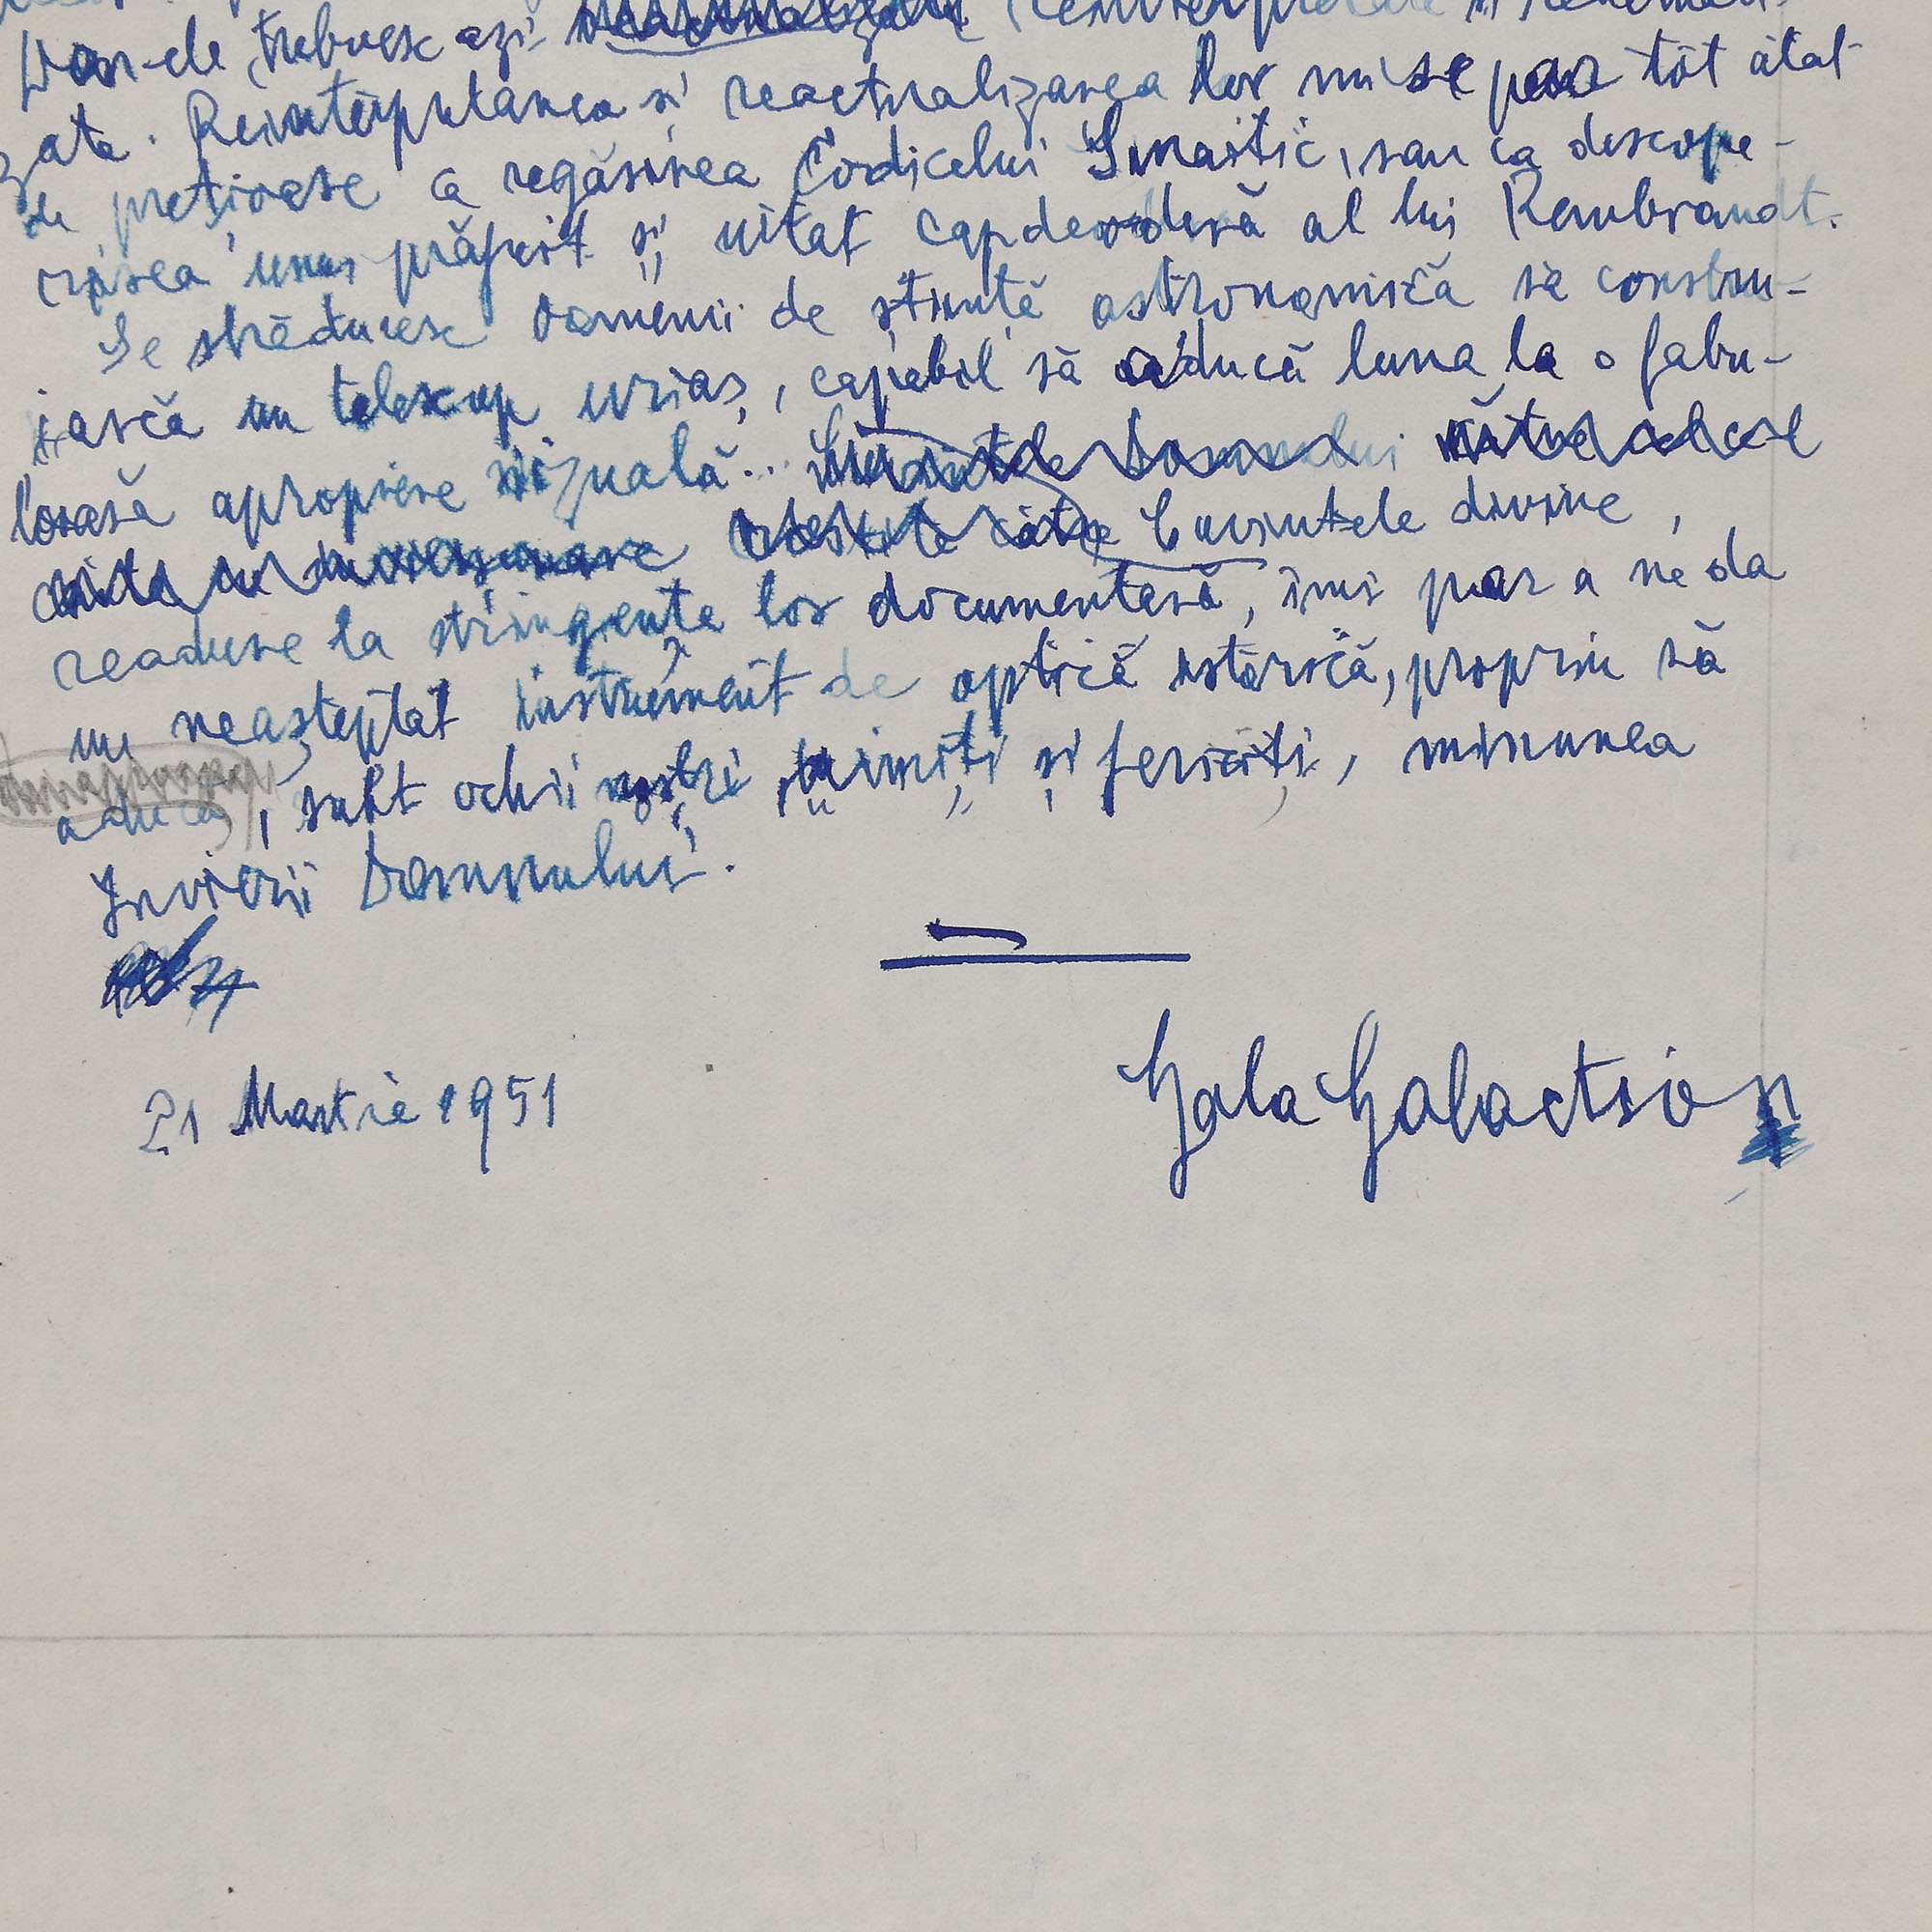 Dar-ele, trebuesc azi
zate. Reinterpretarea și reactualizarea lor mi se par tot atât
de prețioase ca regăsirea Codicelui Sinaitic, sau ca descope-
rirea unui prăfuit și uitat capdeoperă al lui Rembrandt.
Se străduesc oamenii de știință astronomică să constru-
iască un telescop uriaș, capabil să aducă luna la o fabu-
loasă apropiere vizuală... Domnului către
Cuvintele divine,
readuse la stringența lor documentară, îmi par a ne da
un neașteptat instrument de optică istorică, propriu să
aducă, subt ochii noștri uimiți și fericiți, minunea
Învierii Domnului.
21 Martie 1951
Gala Galaction